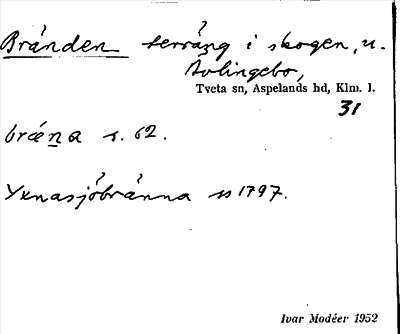 Brånden terräng i skogen, u.
Avlingebo,
Tveta sn, Aspelands hd, Klm. l.
31
brǽn̲a s. 62.
Yxnasjöbränna ss 1797.
Ivar Modéer 1952